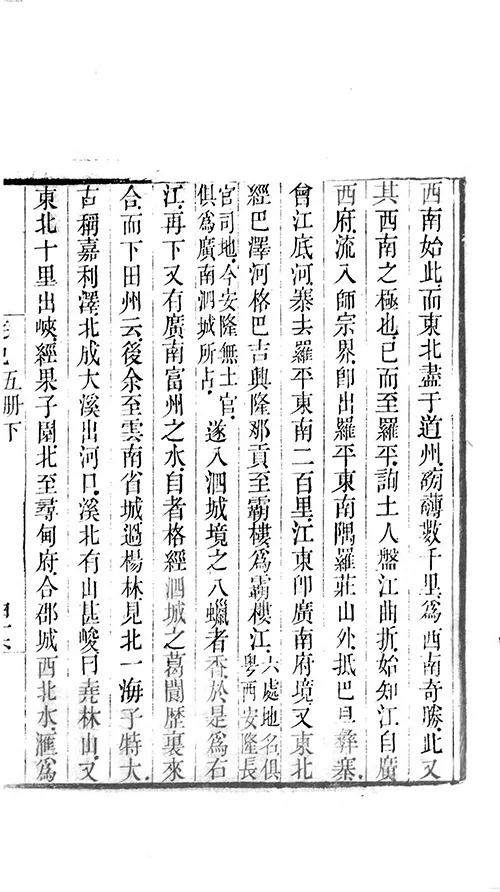 西南始此而東北盡于道州磅礴數千里爲西南奇勝此又
其西南之極也已而至羅平詢土人盤江曲折始知江自廣
西府流入師宗界卽出羅平東南隅羅莊山外抵巴旦彝寨
會江底河寨去羅平東南二百里江東卽廣南府境又東北
經巴澤河格巴吉興隆那貢至霸樓爲霸樓江六處地名俱粤西安隆長
官司地今安隆無土官俱爲廣南泗城所占遂入泗城境之八蠟者香於是爲右
江再下又有廣南富州之水自者格經泗城之葛閬歷裏來
合而下田州云後余至雲南省城過楊林見北一海子特大
古稱嘉利澤北成大溪出河口溪北有山甚峻曰堯林山又
東北十里出峽經果子園北至尋甸府合郡城西北水滙爲
五册下